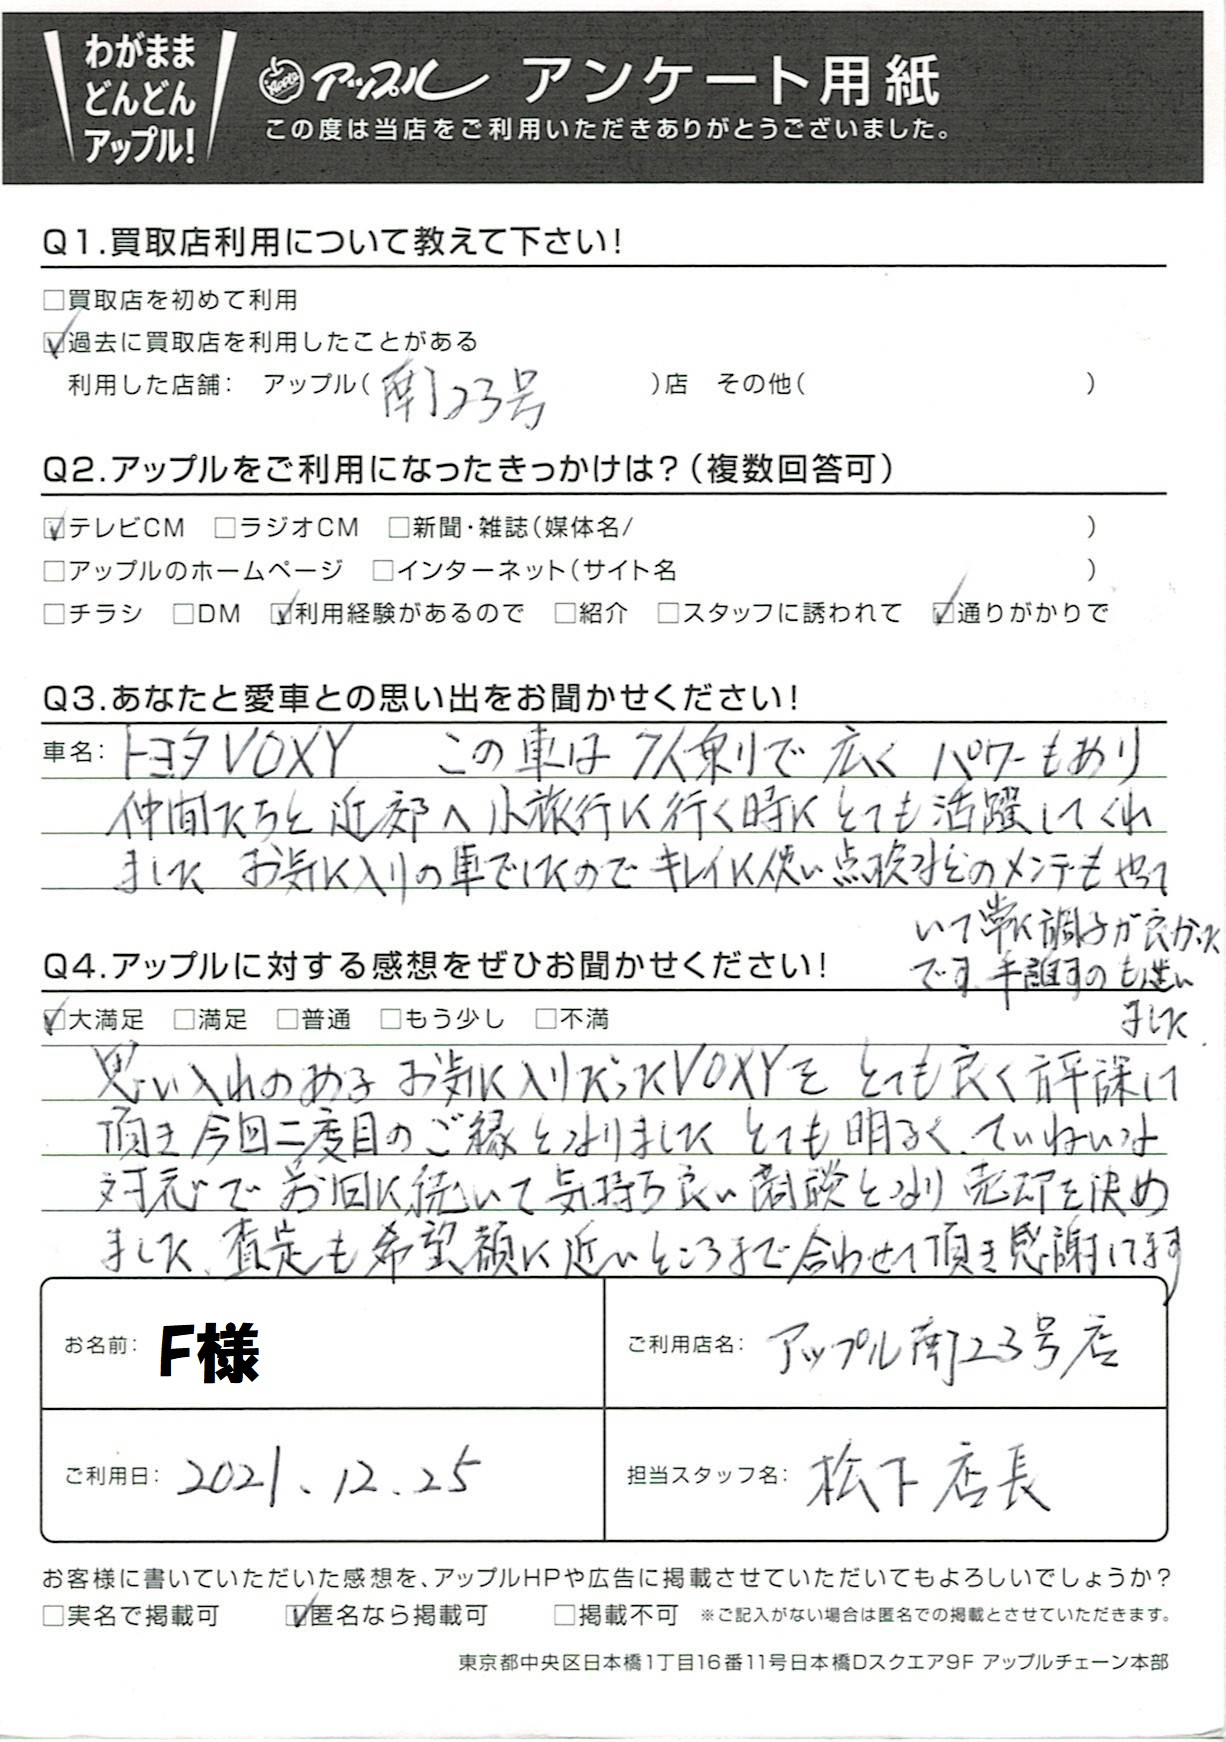 わがまま
どんどん
アップル!
Apple アップル アンケート用紙
この度は当店をご利用いただきありがとうございました。
Q1.買取店利用について教えて下さい!
□買取店を初めて利用
☑過去に買取店を利用したことがある
利用した店舗: アップル(南23号)店 その他( )
Q2.アップルをご利用になったきっかけは?(複数回答可)
☑テレビCM □ラジオCM □新聞・雑誌(媒体名/ )
□アップルのホームページ □インターネット(サイト名 )
□チラシ □DM ☑利用経験があるので □紹介 □スタッフに誘われて ☑通りがかりで
Q3.あなたと愛車との思い出をお聞かせください!
車名: トヨタVOXY この車は7人乗りで広くパワーもあり
仲間たちと近郊へ小旅行に行く時にとても活躍してくれ
ました お気に入りの車でしたのでキレイに使い点検などのメンテもやって
いて常に調子が良かった
です。手離すのも迷い
ました。
Q4.アップルに対する感想をぜひお聞かせください!
☑大満足 □満足 □普通 □もう少し □不満
思い入れのある お気に入りだったVOXYを とても良く評課して
頂き 今回二度目のご縁となりました とても明るく、ていねいな
対応で 前回に続いて気持ち良い商談となり 売却を決め
ました、査定も希望額に近いところまで合わせて頂き感謝してます
お名前: F様
ご利用店名: アップル南23号店
ご利用日: 2021.12.25
担当スタッフ名: 松下店長
お客様に書いていただいた感想を、アップルHPや広告に掲載させていただいてもよろしいでしょうか?
□実名で掲載可 ☑匿名なら掲載可 □掲載不可 ※ご記入がない場合は匿名での掲載とさせていただきます。
東京都中央区日本橋1丁目16番11号日本橋Dスクエア9F アップルチェーン本部